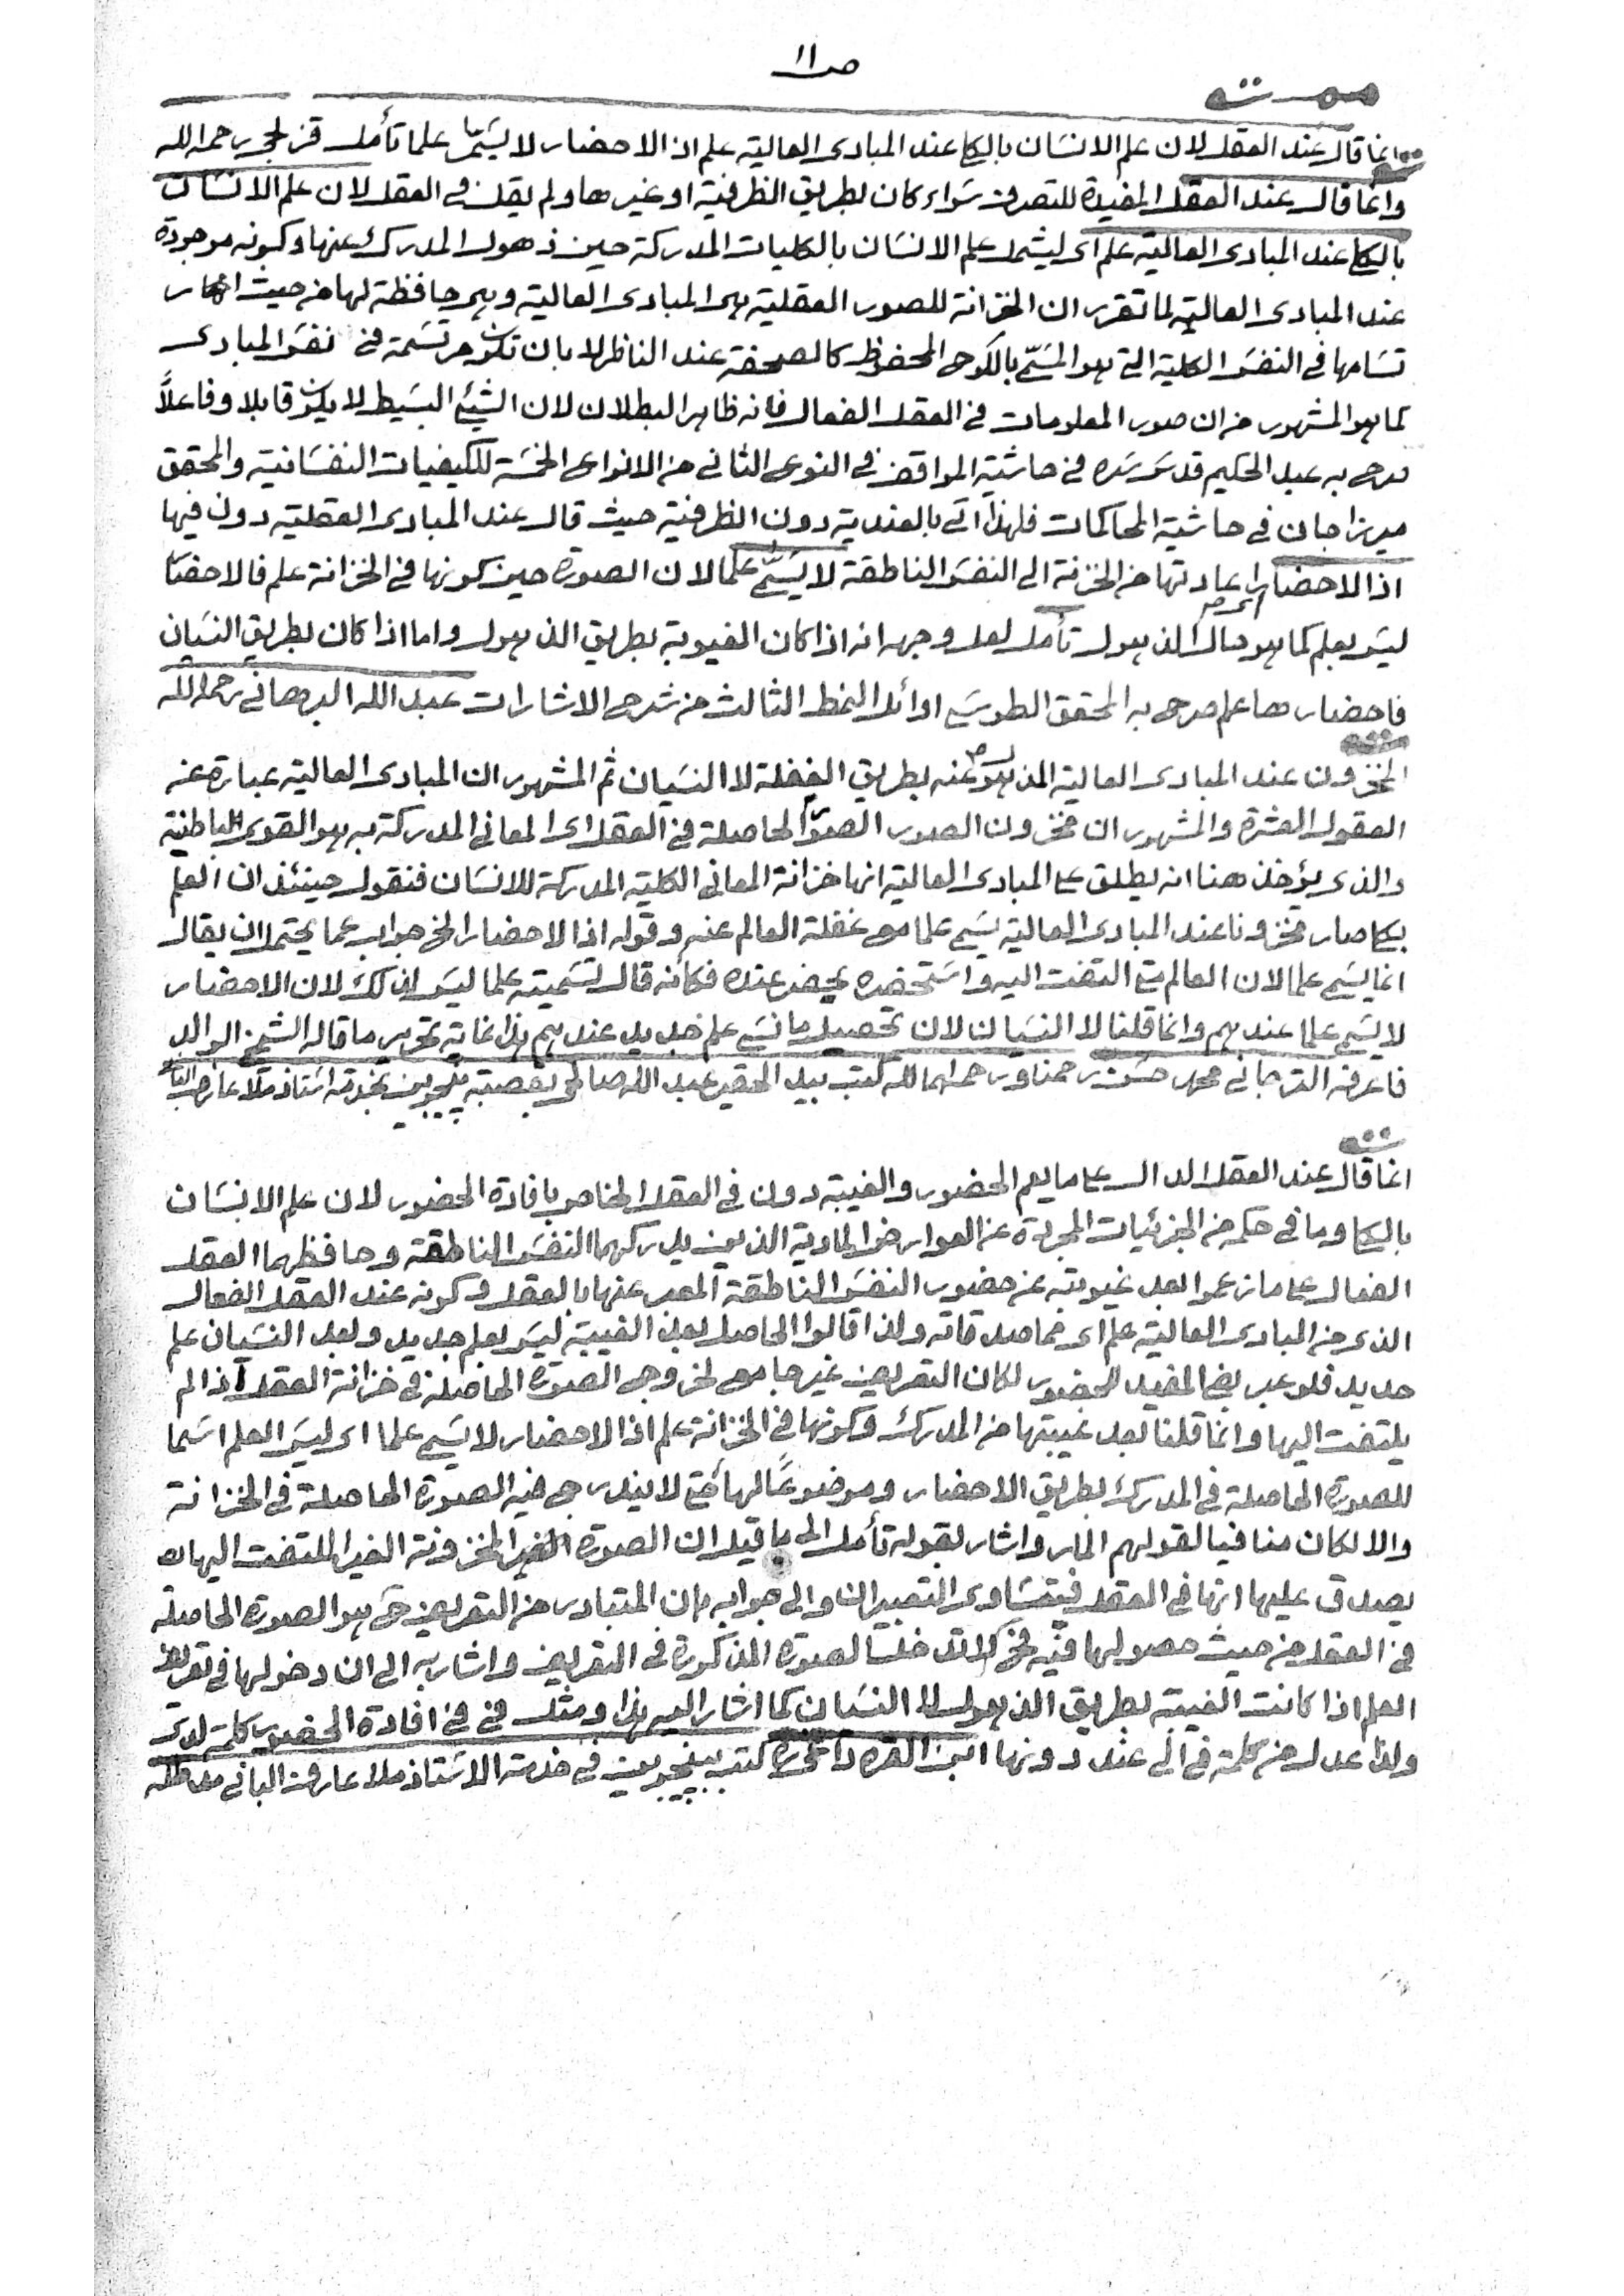 ص ١١
انما قال عند العقل لان علم الانسان بالكلي عند المبادى العالية علم اذ الاحضار لا يسمى علما تأمل قزلجى رحمه الله
وانما قال عند العقل المفيدة للتصرف سواء كان بطريق الظرفية او غيرها ولم يقل في العقل لان علم الانسان
بالكلي عند المبادى العالية علم اى ليشمل علم الانسان بالكليات المدركة حين ذهول المدرك عنها وكونه موجودة
عند المبادى العالية لما تقرر ان الخزانة للصور العقلية هى المبادى العالية وهى حافظة لها من حيث
تسامها في النفس الكلية التى هو المسمى باللوح المحفوظ كالصحفة عند الناظر لا بان تكون مرتسمة في نفس المبادى
كما هو المشهور من ان صور المعلومات في العقل الفعال فانه ظاهر البطلان لان الشيئ البسيط لا يكون قابلا وفاعلاً
صرح به عبد الحكيم قدس سره في حاشية المواقف في النوع الثانى من الانواع الخمسة للكيفيات النفسانية والمحقق
ميرزاجان في حاشية المحاكمات فلهذا اتى بالعندية دون الظرفية حيث قال عند المبادى العقلية دون فيها
اذ الاحضار اى اعادتها من الخزنة الى النفس الناطقة لا يسمى علما لان الصورة حين كونها في الخزانة علم فالاحضار
ليس بعلم كما هو حال الذهول تأمل لعل وجهه انه اذا كان الغيوبة بطريق الذهول واما اذا كان بطريق النسيان
فاحضارها علم صرح به المحقق الطوسى اوائل النمط الثالث من شرح الاشارات عبد الله البرهانى رحمه الله
المخزون عند المبادى العالية المذهول عنه بطريق الغفلة لا النسيان ثم المشهور ان المبادى العالية عبارة عن
العقول العشرة والمشهور ان مخزون الصور الحاصلة في العقل اى المعانى المدركة به هو القوى الباطنية
والذى يؤخذ هنا انه يطلق على المبادى العالية انها خزانة المعانى الكلية المدركة للانسان فنقول حينئذ ان العلم
بكلي صار مخزونا عند المبادى العالية يسمى علما مع غفلة العالم عنه وقوله اذ الاحضار الخ جواب عما يحتمل ان يقال
انما يسمى علما لان العالم متى التفت اليه واستحضره يحضر عنده فكأنه قال تسميته علما ليس لذلك لان الاحضار
لا يسمى علما عندهم وانما قلنا لا النسيان لان تحصيل ما نسي علم جديد عندهم هذا غاية تحرير ما قاله الشيخ الوالد
فاعرفه الترجانى محمد حسن رحمنا ورحمهما الله كتب بيد الحقير عبد الله صالحى بقصبة بخدمة استاذ ملا عارف
انما قال عند العقل الدال على ما يعم الحضور والغيبة دون في العقل الخاص بافادة الحضور لان علم الانسان
بالكلي وما في حكمه من الجزئيات المجردة عن العوارض المادية الذين يدركهما النفس الناطقة وحافظهما العقل
الفعال على ما زعموا بعد غيوبته عن حضور النفس الناطقة المعبر عنها بالعقل وكونه عند العقل الفعال
الذى من المبادى العالية علم اى مما صدقاته ولذا قالوا الحاصل بعد الغيبة ليس بعلم جديد وبعد النسيان علم
جديد فلو عبر بفى المفيد للحضور لكان التعريف غير جامع لخروج الصورة الحاصلة في خزانة العقل اذا لم
يلتفت اليها وانما قلنا بعد غيبتها من المدرك وكونها في الخزانة علم اذ الاحضار لا يسمى علما اى ليس العلم اسما
للصورة الحاصلة في المدرك بطريق الاحضار وموضوعًا لها حتى لا يندرج فيه الصورة الحاصلة في الخزانة
والا لكان منافيا لقولهم المار واشار بقوله تأمل الى ما قيل ان الصورة المخزونة الغير الملتفت اليها
يصدق عليها انها في العقل فيتساوى التعبيران والى جوابه بان المتبادر من التعريف هو الصورة الحاصلة
في العقل من حيث حصولها فيه لصورة المذكورة في التعريف واشار به الى ان دخولها في تعريف
العلم اذا كانت الغيبة بطريق الذهول لا النسيان كما اشار اليه هذا ومثل في في افادة الحضور كلمة لدى
ولذا عدل من كلمة في الى عند دونها ابن القره داغى كتب في خدمة الاستاذ ملا عارف البانى